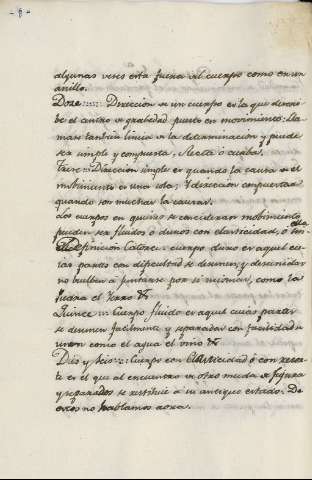 - 6 -
algunas veses esta fuera del cuerpo como en un
anillo.
Doze :::: Direccion de un cuerpo es la que descri-
be el centro de grabedad puesto en movimiento: Lla-
mase tambien linia de la determinacion y puede
ser simple y compuesta, Recta o curba.
Trese :: Direccion simple es quando la causa de el
mobimiento es una sola; Y direccion compuesta
quando son muchas la causas.
Los cuerpos en quienes se consideran mobimiento
pueden ser fluidos ó duros con elasticidad, ó sin
ella
Definicion Catorce: cuerpo duro es aquel cu-
ias partes con dificultad se desunen, y desunidas
no buelben á juntarse por si mismas, como la
piedra el Yerro &
Quince :: Cuerpo fluido es aquel cuias partes
se desunen facilmente y separadas con facilidad se
unen como el agua el vino &
Dies y seis :: Cuerpo con Elasticidad ó con resor-
te es el que al encuentro de otro muda de figura
y separados se restituie á su antiguo estado. De
estos no hablamos aora.